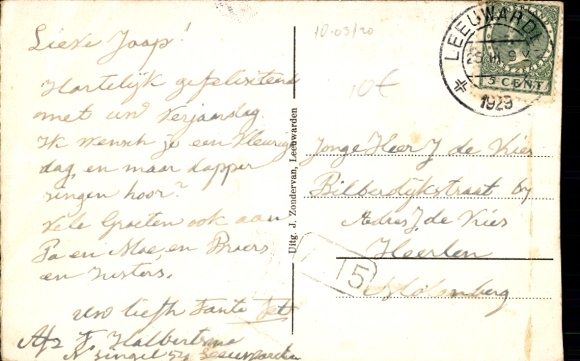 Lieve Jaap!
Hartelijk gefeliciteerd
met uw verjaardag.
Ik wensch je een kleurige
dag, en maar dapper
zingen hoor?
Vele Groeten ook aan
Pa en Moe, en Broers
en Zusters,
uw liefh Tante Jet
Afz F, Halbertsma
N singel 54 Leeuwarden
Uitg. J. Zondervan, Leeuwarden
10-03/20
10€
LEEUWARDEN
1929
5 CENT
Jonge Heer J de Vries
Bilderdijkstraat
Adres J, de Vries
Heerlen
5